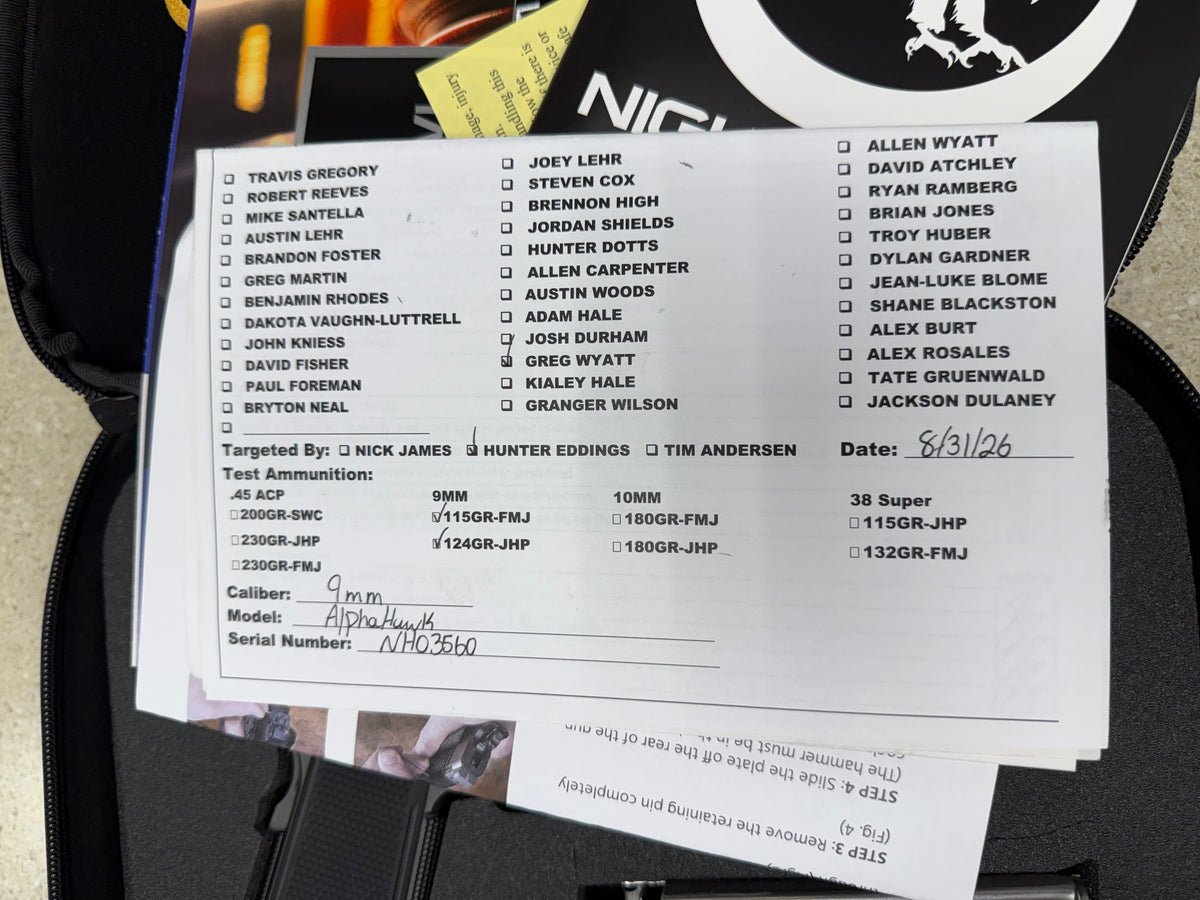 age, injury
andling this
n.
ow the
f there is
vice or
afe
NIGH
☐ TRAVIS GREGORY
☐ ROBERT REEVES
☐ MIKE SANTELLA
☐ AUSTIN LEHR
☐ BRANDON FOSTER
☐ GREG MARTIN
☐ BENJAMIN RHODES
☐ DAKOTA VAUGHN-LUTTRELL
☐ JOHN KNIESS
☐ DAVID FISHER
☐ PAUL FOREMAN
☐ BRYTON NEAL
☐
☐ JOEY LEHR
☐ STEVEN COX
☐ BRENNON HIGH
☐ JORDAN SHIELDS
☐ HUNTER DOTTS
☐ ALLEN CARPENTER
☐ AUSTIN WOODS
☐ ADAM HALE
☐ JOSH DURHAM
☑ GREG WYATT
☐ KIALEY HALE
☐ GRANGER WILSON
☐ ALLEN WYATT
☐ DAVID ATCHLEY
☐ RYAN RAMBERG
☐ BRIAN JONES
☐ TROY HUBER
☐ DYLAN GARDNER
☐ JEAN-LUKE BLOME
☐ SHANE BLACKSTON
☐ ALEX BURT
☐ ALEX ROSALES
☐ TATE GRUENWALD
☐ JACKSON DULANEY
Targeted By: ☐ NICK JAMES ☑ HUNTER EDDINGS ☐ TIM ANDERSEN Date: 8/31/26
Test Ammunition:
.45 ACP 9MM 10MM 38 Super
☐200GR-SWC ☑115GR-FMJ ☐180GR-FMJ ☐115GR-JHP
☐230GR-JHP ☑124GR-JHP ☐180GR-JHP ☐132GR-FMJ
☐230GR-FMJ
Caliber: 9mm
Model: AlphaHawk
Serial Number: NH03560
STEP 3: Remove the retaining pin completely
(Fig. 4)
STEP 4: Slide the plate off the rear of the gun
(The hammer must be in th